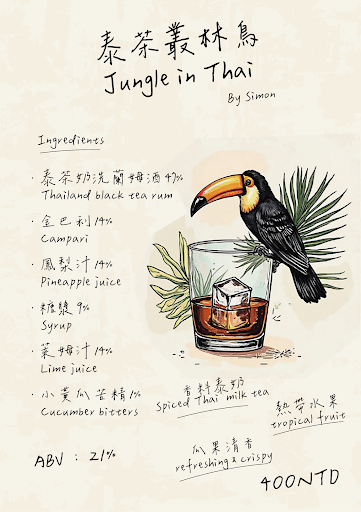 泰茶叢林鳥
Jungle in Thai
By Simon
Ingredients
· 泰茶奶洗蘭姆酒 49%
Thailand black tea rum
· 金巴利 14%
Campari
· 鳳梨汁 14%
Pineapple juice
· 糖漿 9%
Syrup
· 萊姆汁 14%
Lime juice
· 小黃瓜苦精 1%
Cucumber bitters
香料泰奶
Spiced Thai milk tea
熱帶水果
tropical fruit
瓜果清香
refreshing & crispy
ABV : 21%
400NTD